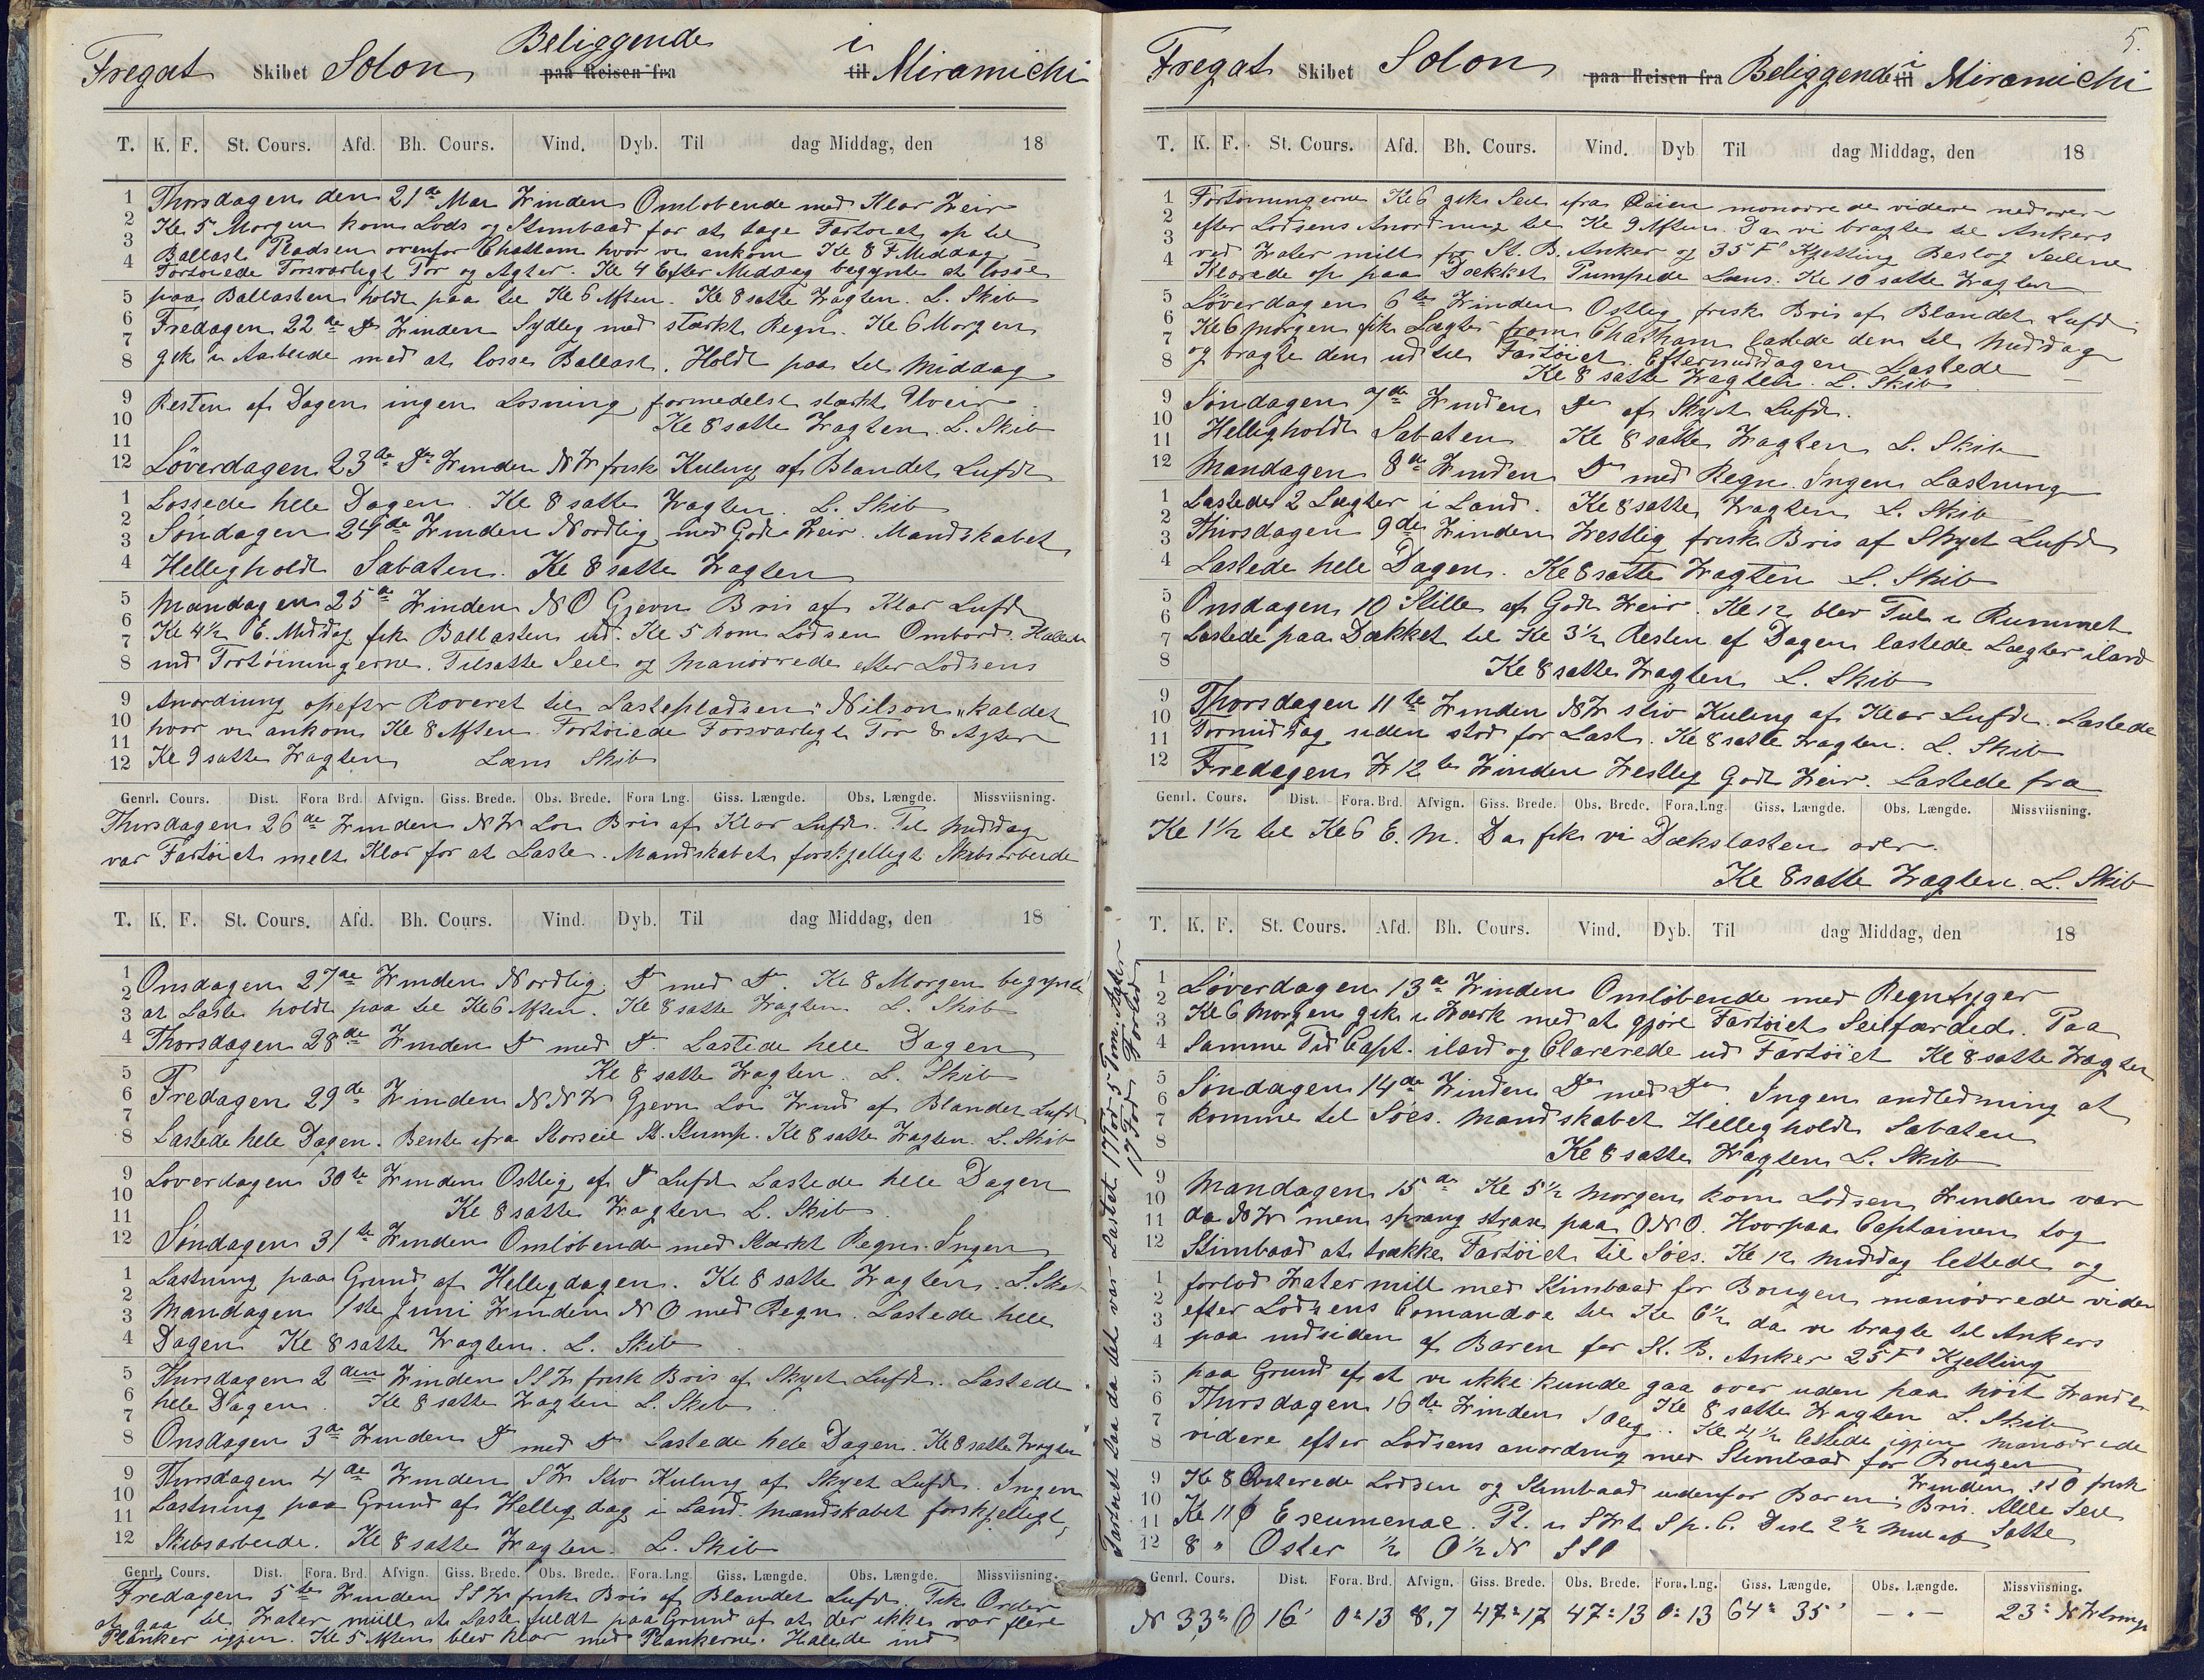 Beliggende i
Fregat Skibet Solon paa Reisen fra til Miramichi
T. K. F. St. Cours. Afd. Bh. Cours. Vind. Dyb. Til dag Middag, den 18
Thorsdagen den 21de Mai Winden Omløbende med Klar Weir
Kl 5 Morgen kom Lods og Stimbaad for at tage Fartøiet op til
Ballast Pladsen ovenfor Chatham hvor vi ankom Kl 8 F. Middag
Fortøiede Forsvarligt For og Agter. Kl 4 Efter Middag begynte at losse
paa Ballasten holdt paa til Kl 6 Aften. Kl 8 satte Wagten. L. Skib
Fredagen 22de Do Winden Sydlig med stærkt Regn. Kl 6 Morgen
gik i Arbeide med at losse Ballast. Holdt paa til Middag
Resten af Dagen ingen Losning formedelst stærkt Uveir
Kl 8 satte Wagten. L. Skib
Löverdagen 23de Do Winden NW frisk Kuling af Blandet Lufdt
Lossede hele Dagen. Kl 8 satte Wagten. L. Skib
Søndagen 24de Winden Nordlig med Godt Weir. Mandskabet
Helligholdt Sabaten. Kl 8 satte Wagten
Mandagen 25de Winden NO Gjevn Bris af Klar Lufdt
Kl 4½ E. Middag fik Ballasten ud. Kl 5 kom Lodsen Ombord. Halede
ind Fortøiningerne. Tilsatte Seil og manøvrede efter Lodsens
Anordning opefter Roveret til Lastepladsen "Nilson" kaldet
hvor vi ankom Kl 8 Aften. Fortøiede Forsvarligt For & Agter
Kl 9 satte Wagten Læns Skib
Genrl. Cours. Dist. Fora Brd. Afvign. Giss. Brede. Obs. Brede. Fora Lng. Giss. Længde. Obs. Længde. Missviisning.
Thirsdagen 26de Winden NW Lon Bris af Klar Lufdt. Til Middag
var Fartøiet melt Klar for at Laste. Mandskabet forskjelligt Skibsarbeide
T. K. F. St. Cours. Afd. Bh. Cours. Vind. Dyb. Til dag Middag, den 18
Onsdagen 27de Winden Nordlig Do med Do. Kl 8 Morgen begynte
at Laste holdt paa til Kl 6 Aften. Kl 8 satte Wagten. L. Skib
Thorsdagen 28de Winden Do med Do. Lastede hele Dagen
Kl 8 satte Wagten. L. Skib
Fredagen 29de Winden NNW Gjevn Lon Wind af Blandet Lufdt
Lastede hele Dagen. Bente ifra Storseil St. Stump. Kl 8 satte Wagten. L. Skib
Loverdagen 30te Winden Ostlig af Do Lufdt Lastede hele Dagen
Kl 8 satte Wagten L. Skib.
Søndagen 31te Winden Omløbende med Stærkt Regn. Ingen
Lastning paa Grund af Helligdagen. Kl 8 satte Wagten. L. Skib
Mandagen 1ste Juni Winden NO med Regn. Lastede hele
Dagen Kl 8 satte Wagten. L. Skib
Thirsdagen 2den Winden SSW frisk Bris af Skyet Lufdt. Lastede
hele Dagen. Kl 8 satte Wagten L. Skib
Onsdagen 3de Winden Do med Do Lastede hele Dagen. Kl 8 satte Wagten
Thirsdagen 4de Winden SW Stiv Kuling af Skyet Lufdt. Ingen
Lastning paa Grund af Hellig dag i Land. Mandskabet forskjelligt
Skibsarbeide. Kl 8 satte Wagten. L. Skib
Genrl. Cours. Dist. Fora. Brd. Afvign. Giss. Brede. Obs. Brede. Fora. Lng. Giss. Længde. Obs. Længde. Missviisning.
Fredagen 5te Winden SSW frisk Bris af Blandet Lufdt. Fik Order
at gaa til Water mill at Laste fuldt paa Grund af at der ikke var flere
Planker igjen. Kl 5 Aften blev klar med Plankerne. Halede ind
Fartøiet Laa da det var Lastet 17 Fod 5 Tom. Agter
17 Fod Forud
5.
Fregat Skibet Solon paa Reisen fra Beliggende i til Miramichi
T. K. F. St. Cours. Afd. Bh. Cours. Vind. Dyb Til dag Middag, den 18
Fortøiningerne Kl 6 gik Seil ifra Qaien monovrede videre nedover
efter Lodsens Anordning til Kl 9 Aften. Da vi bragte til Ankers
ved Water mill for St. B. Anker og 35 F Kjetting Beslog Seilene
Klarede op paa Dækket Pumpede Læns. Kl 10 satte Wagten
Löverdagen 6te Winden Ostlig frisk Bris af Blandet Lufd
Kl 6 Morgen fik Lægter from Chatham lastede dem til Middag
og bragte dem ud til Fartøiet. Eftermiddagen Lastede
Kl 8 satte Wagten. L. Skib
Søndagen 7de Winden Do af Skyet Lufdt.
Helligholdt Sabaten Kl 8 satte Wagten L. Skib
Mandagen 8de Winden Do med Regn. Ingen Lastning
Lastede 2 Lægter i Land. Kl 8 satte Wagten L. Skib
Thirsdagen 9de Winden Westlig frisk Bris af Skyet Lufdt
Lastede hele Dagen. Kl 8 satte Wagten L. Skib
Onsdagen 10 Stille af Godt Weir. Kl 12 blev Ful i Rummet
Lastede paa Dækket til Kl 3½ Resten af Dagen lastede Lægter iland
Kl 8 satte Wagten L. Skib
Thorsdagen 11te Winden NW stiv Kuling af Klar Lufdt. Lastede
Formiddag siden stod for Last. Kl 8 satte Wagten. L. Skib
Fredagen 12te Winden Westlig Godt Weir. Lastede fra
Genrl. Cours. Dist. Fora. Brd. Afvign. Giss. Brede. Obs. Brede. Fora. Lng. Giss. Længde. Obs. Længde. Missviisning.
Kl 1½ til Kl 6 E. M. Da fik vi Dækslasten over.
Kl 8 satte Wagten. L. Skib
T. K. F. St. Cours. Afd. Bh. Cours. Vind. Dyb. Til dag Middag, den 18
Løverdagen 13de Winden Omløbende med Regntyger
Kl 6 Morgen gik i Wærk med at gjøre Fartøiet Seilfærded. Paa
Samme Tid Capt. iland og Clarerede ud Fartøiet Kl 8 satte Wagten
Søndagen 14de Winden Do med Do. Ingen andledning at
komme til Søes. Mandskabet Helligholdt Sabaten
Kl 8 satte Wagten L. Skib
Mandagen 15de Kl 5½ Morgen kom Lodsen Winden var
da NW men sprang strax paa ONO. Hvorpaa Captainen tog
Stimbaad at trække Fartøiet til Søes. Kl 12 Middag lettede og
forlod Water mill med Stimbaad for Bougen manøvrede videre
efter Lodsens Comandoe til Kl 6½ da vi bragte til Ankers
paa indsiden af Baren for St. B. Anker 25 F Kjetting
paa Grund af at vi ikke kunde gaa over uden paa høit Wande
Kl 8 satte Wagten L. Skib
Thirsdagen 16de Winden SOlig. Kl 4½ lettede igjen manøvrede
videre efter Lodsens anordning med Stimbaad for Bougen
Winden SSO frisk
Kl 8 Qviterede Lodsen og Stimbaad udenfor Baren. Bris. Alle Seil
Kl 11 Escumenac. Pt. i SWt S p. C. Dist 2½ Mil af Satte
8 " Oster ½ O½N SSO
Genrl. Cours. Dist. Fora. Brd. Afvign. Giss. Brede. Obs. Brede. Fora. Lng. Giss. Længde. Obs. Længde. Missviisning.
N 33° O 16' 0=13 8,7 47=17 47=13 0=13 64= 35' — . — 23°